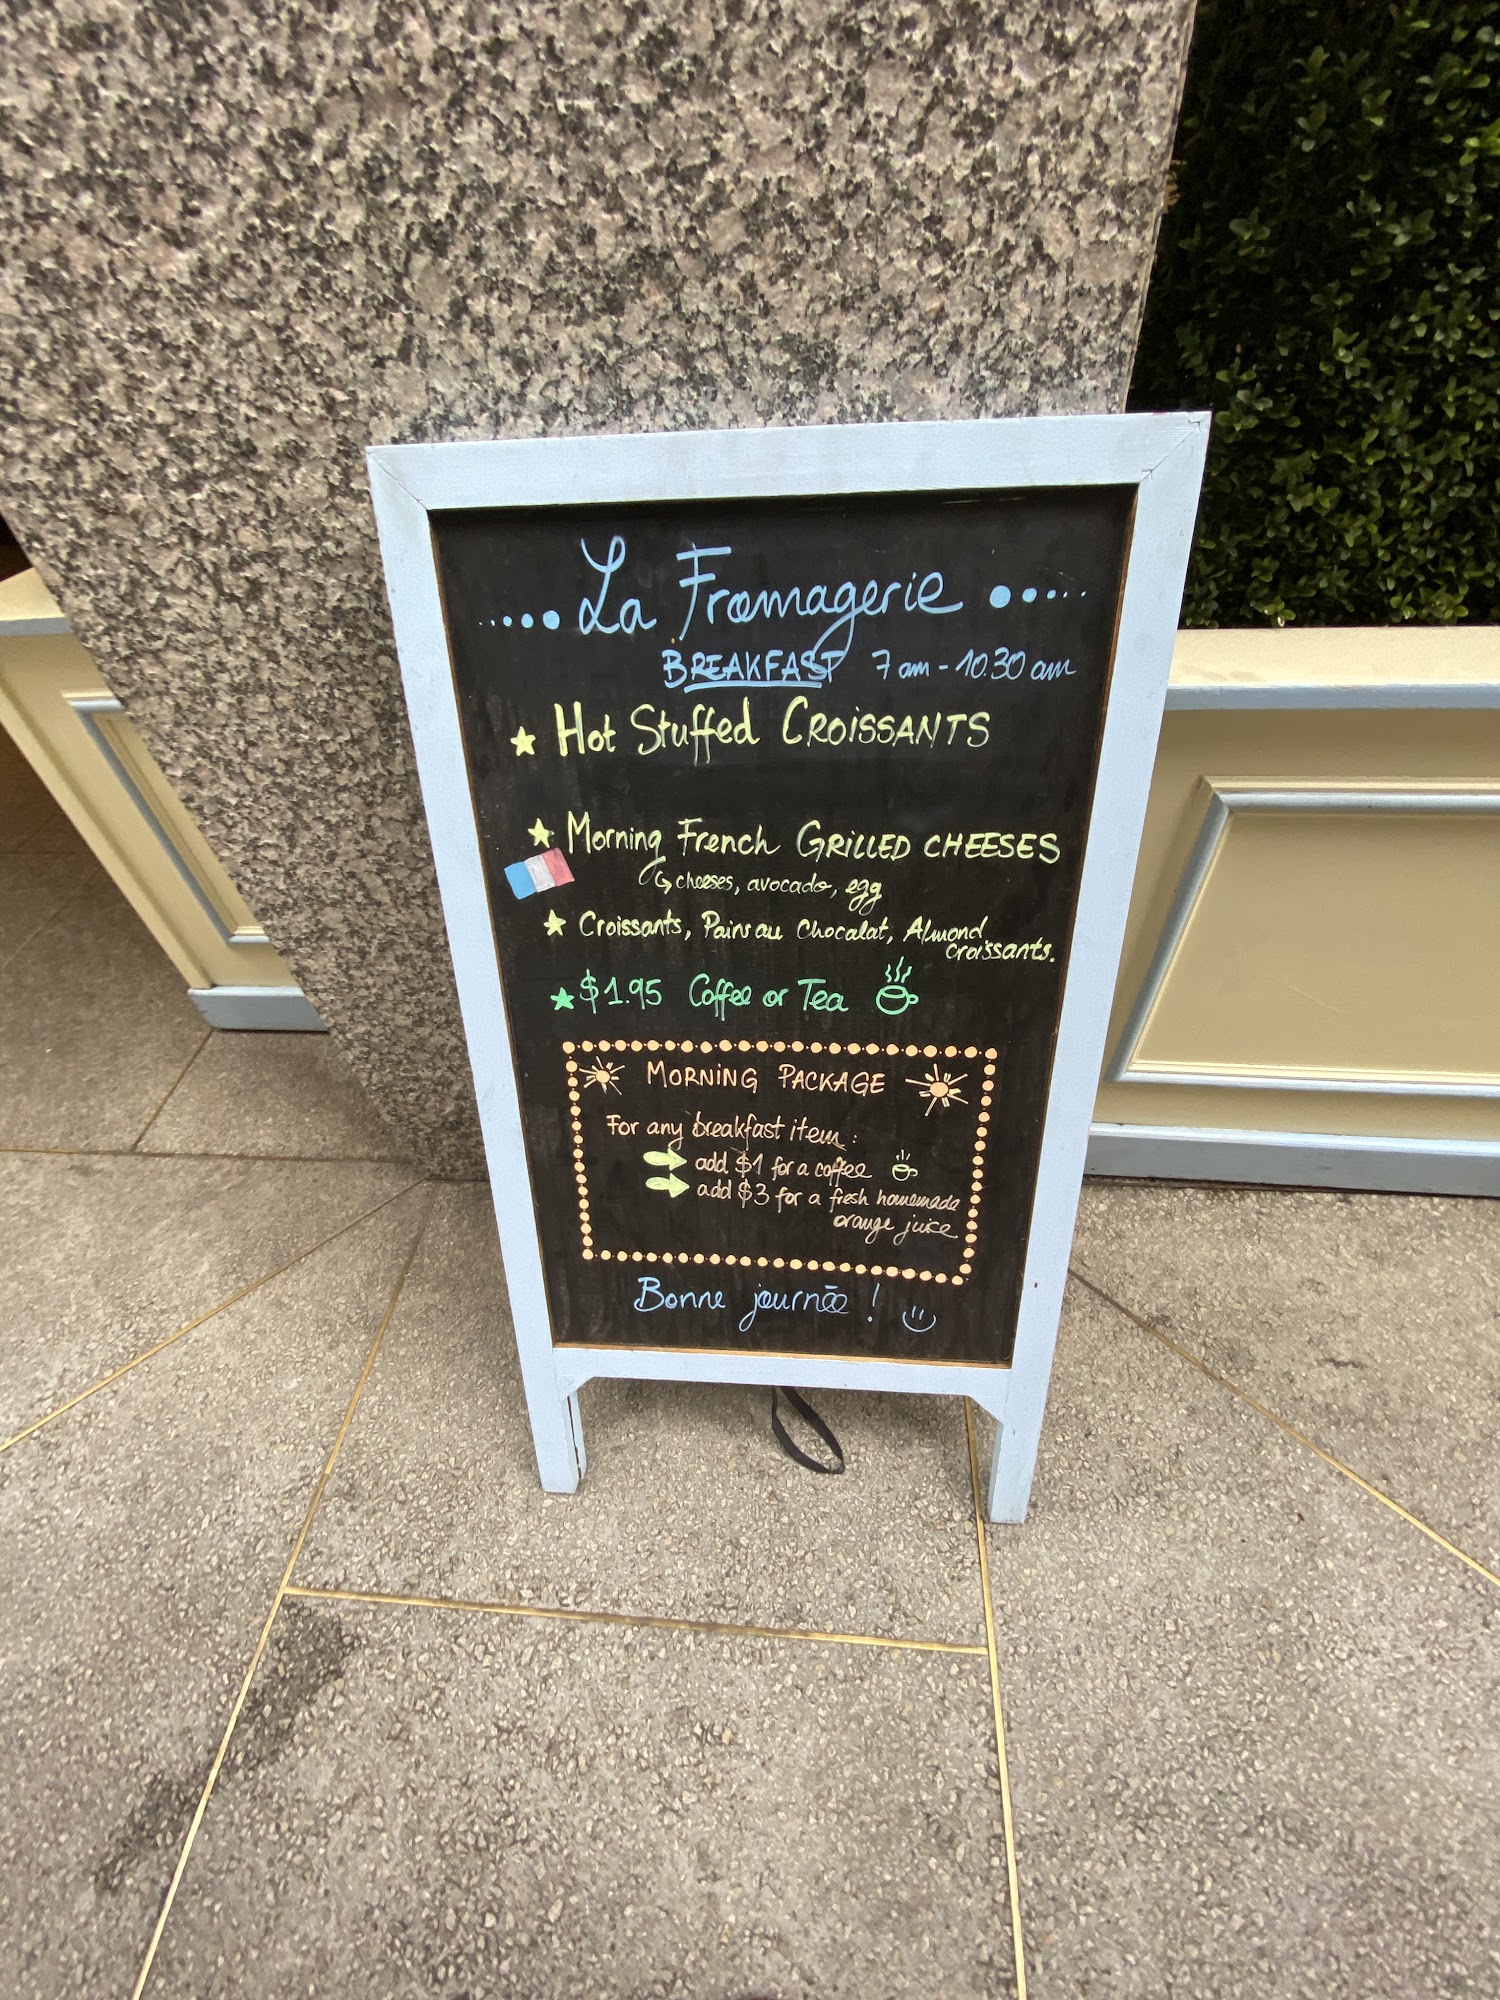 La Fromagerie
BREAKFAST 7 am - 10.30 am
Hot Stuffed CROISSANTS
Morning French GRILLED CHEESES
cheeses, avocado, egg
Croissants, Pains au Chocolat, Almond
croissants.
$1.95 Coffee or Tea
MORNING PACKAGE
For any breakfast item:
add $1 for a coffee
add $3 for a fresh homemade
orange juice
Bonne journée !